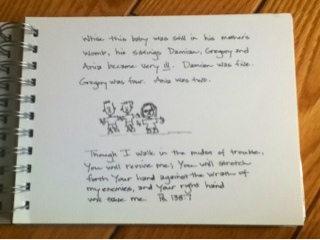 While this baby was still in his mother's
womb, his siblings Damian, Gregory and
became very ill. Damian was five.
Gregory was four. was two.
Though I walk in the midst of trouble,
You will revive me; You will stretch
forth Your hand against the wrath of
my enemies, and Your right hand
will save me. Ps 138:7